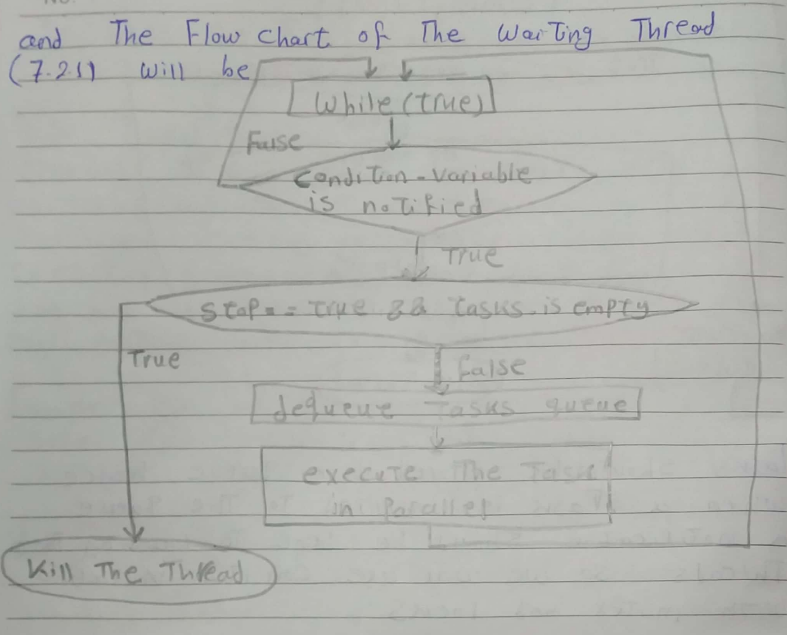 No.
and The Flow chart of The Waiting Thread
(7.2.1) will be
While (true)
False
Condition-variable
is notified
True
Stop == true && tasks.is empty
True
False
dequeue Tasks queue
execute The Task
in Parallel
Kill The Thread